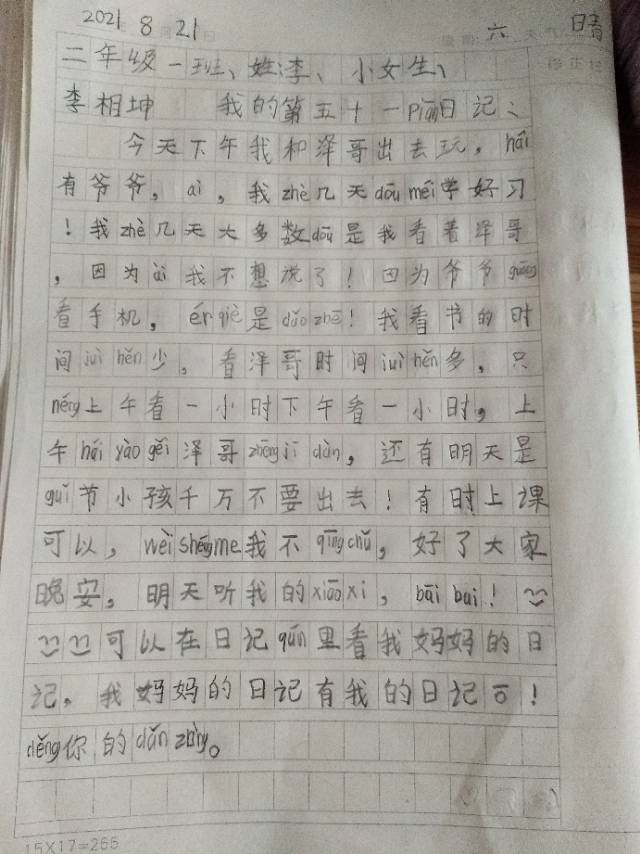 2021 8月21日 星期:六 天气 晴
二年级一班、姓:李、小女生、
李相坤 我的第五十一piān日记、
今天下午我和泽哥出去玩,hái
有爷爷,ài,我zhè几天dōu méi学好习
!我zhè几天大多数dōu是我看着泽哥
,因为ài我不想说了!因为爷爷guāng
看手机,ér qiě是dǎo zhe!我看书的时
间jiù hěn少,看泽哥时间jiù hěn多,只
néng上午看一小时下午看一小时,上
午hái yào gěi泽哥zhēng jī dàn,还有明天是
guǐ节小孩千万不要出去!有时上课
可以,wèi shéng me我不qīng chǔ,好了大家
晚安,明天听我的xiāo xi,bāi bai!
可以在日记qún里看我妈妈的日
记。我妈妈的日记有我的日记!
děng你的dǎn zhàng。
15X17=255